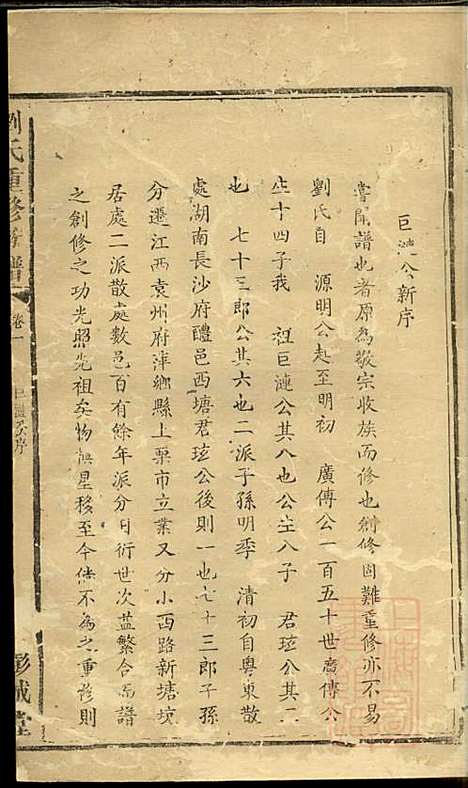 巨漣公新序
嘗聞譜也者原為敬宗收族而修也創修固難重修亦不易
劉氏自 源明公起至明初 廣傳公一百五十世廣傳公
生十四子我 祖巨漣公其八也公生八子 君珓公其二
也 七十三郎公其六也二派子孫明季 清初自粵東散
處湖南長沙府醴邑西塘君珓公後則一也七十三郎子孫
分遷江西袁州府萍鄉縣上栗市立業又分小西路新塘坟
居處二派散處數邑百有餘年派分日衍世次益繁合為譜
之創修之功光照先祖矣物換星移至今使不為之重修則
劉氏重修族譜 卷一 巨漣公序 彭城堂